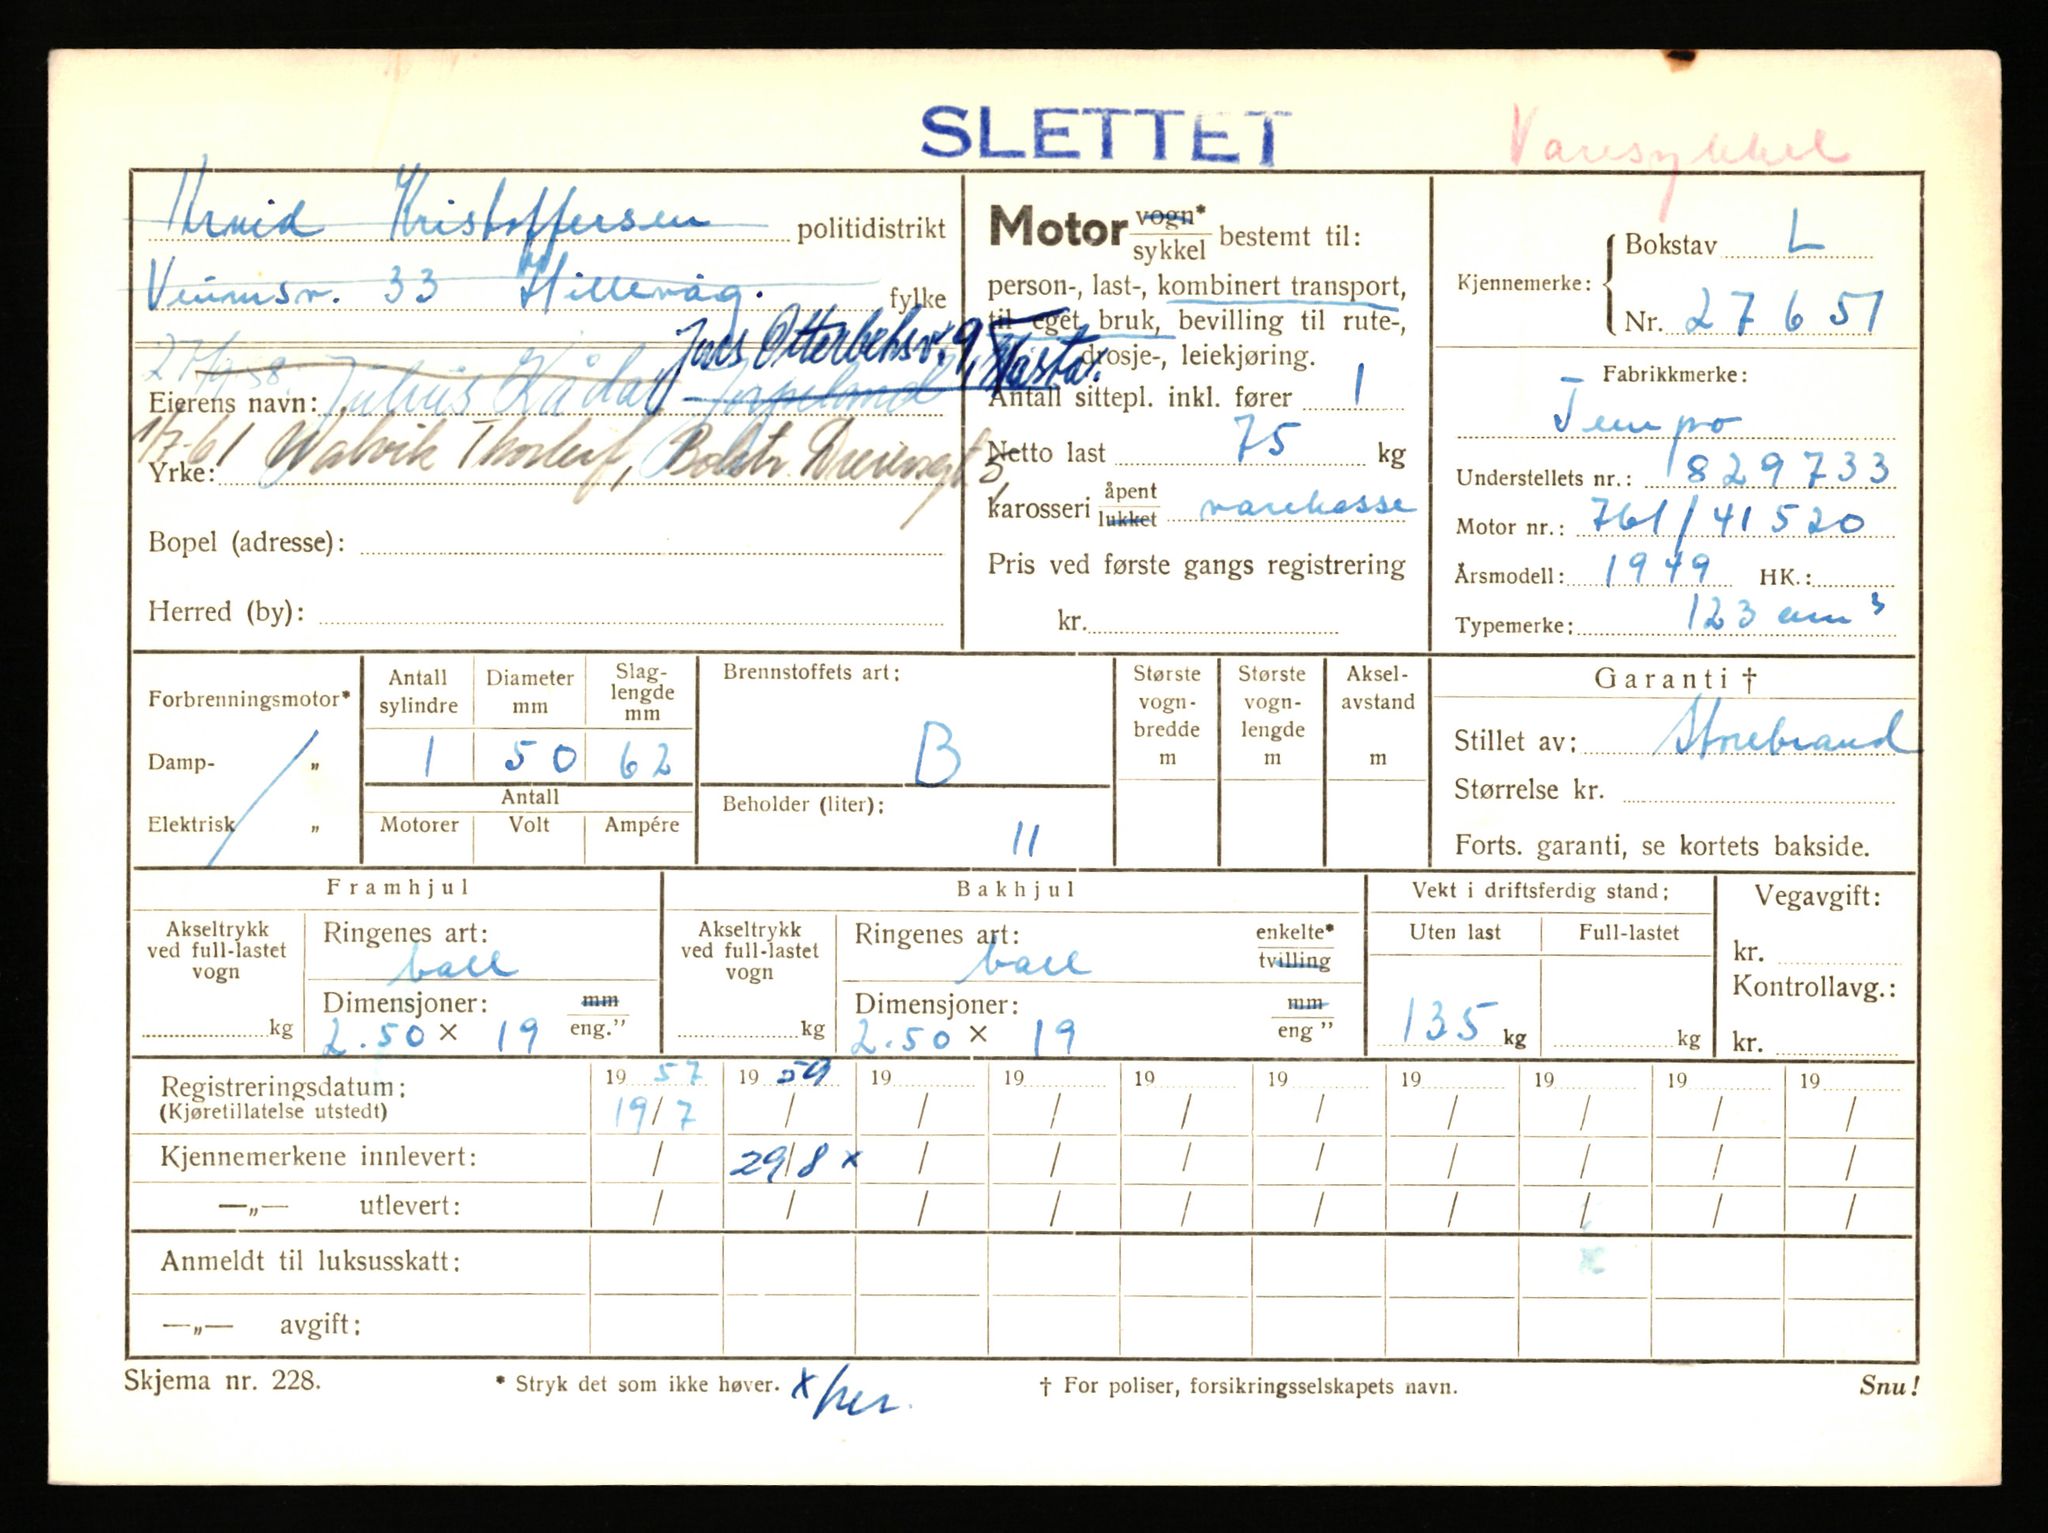 SLETTET
Varesykkel
Arvid Kristoffersen politidistrikt
33 Hillevåg. fylke
Jens Otterbeksv. 9, Tasta.
27/9 58. Julius Kådal
Eierens navn:
1/7-61 Walvik Thorleif,
Yrke:
Bopel (adresse):
Herred (by):
Motor vogn* sykkel bestemt til:
person-, last-, kombinert transport,
til eget bruk, bevilling til rute-,
drosje-, leiekjøring.
Antall sittepl. inkl. fører 1
Netto last 75 kg
karosseri åpent lukket varekasse
Pris ved første gangs registrering
kr.
Kjennemerke: Bokstav L
Nr. 27651
Fabrikkmerke:
Tempo
Understellets nr.: 829733
Motor nr.: 761/41520
Årsmodell: 1949 HK.:
Typemerke: 123 cm³
Forbrenningsmotor*
Damp- „
Elektrisk „
Antall sylindre Diameter mm Slag-lengde mm
1 50 62
Antall
Motorer Volt Ampére
Brennstoffets art:
B
Beholder (liter):
11
Største vogn-bredde m
Største vogn-lengde m
Aksel-avstand m
Garanti †
Stillet av: Storebrand
Størrelse kr.
Forts. garanti, se kortets bakside.
Framhjul
Akseltrykk ved full-lastet vogn
kg
Ringenes art:
ball
Dimensjoner: mm
2.50 × 19 eng.”
Bakhjul
Akseltrykk ved full-lastet vogn
kg
Ringenes art: enkelte* tvilling
ball
Dimensjoner: mm
2.50 × 19 eng”
Vekt i driftsferdig stand:
Uten last Full-lastet
135 kg kg
Vegavgift:
kr.
Kontrollavg.:
kr.
Registreringsdatum: 19 57 19 59 19 19 19 19 19 19 19 19
(Kjøretillatelse utstedt) 19/7 / / / / / / / / /
Kjennemerkene innlevert: / 29/8 x / / / / / / / /
—„— utlevert: / / / / / / / / / /
Anmeldt til luksusskatt:
—„— avgift:
Skjema nr. 228. * Stryk det som ikke høver. x her. † For poliser, forsikringsselskapets navn. Snu!